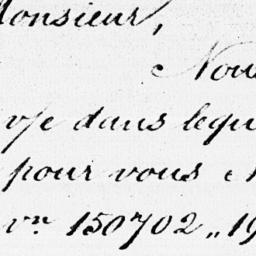 Monsieur,
Nous
v/e dans lequ
pour vous
vn 150702 „ 19